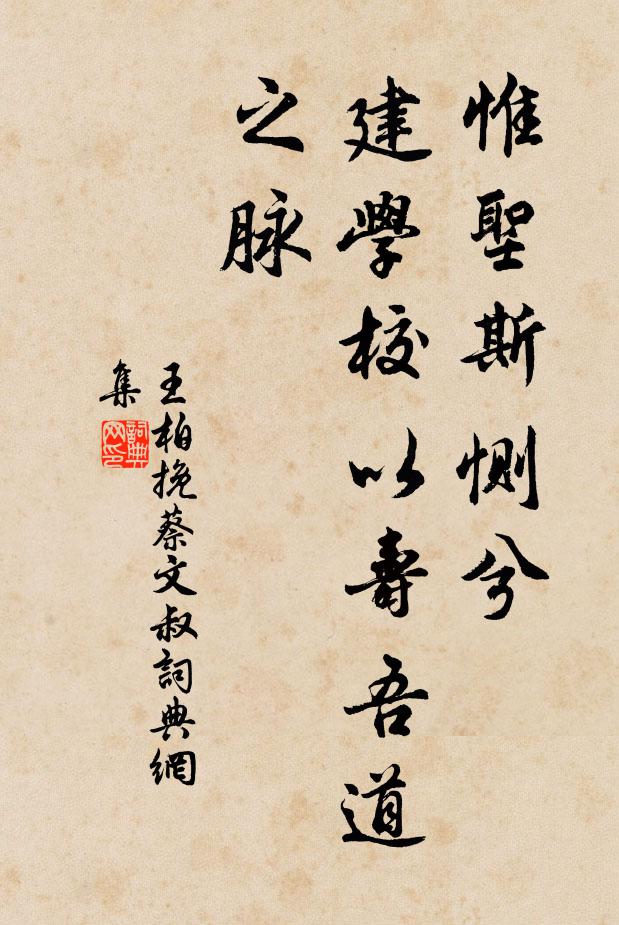 惟聖斯惻兮
建學校以壽吾道
之脉
王柏挽蔡文叔詞典網
集
詞典
网印